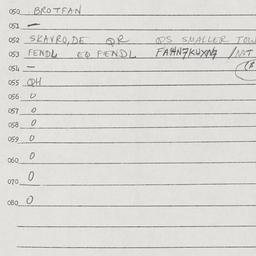 050 BROTFAN
051 —
052 SKAVRO, DE QR QS SMALLER TOW
053 FENDL EQ FENDL / NOT
054 —
055 QH
056 0
057 0
058 0
059 0
060 0
070 0
080 0